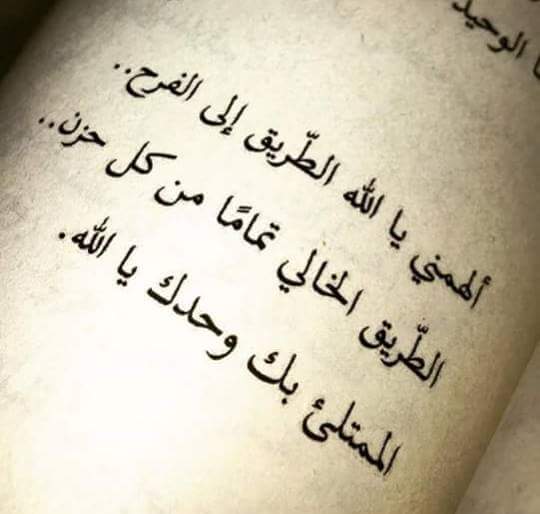 ا الوحيد
ألهمني يا الله الطّريق إلى الفرح..
الطّريق الخالي تمامًا من كل حزن..
الممتلئ بك وحدك يا الله.